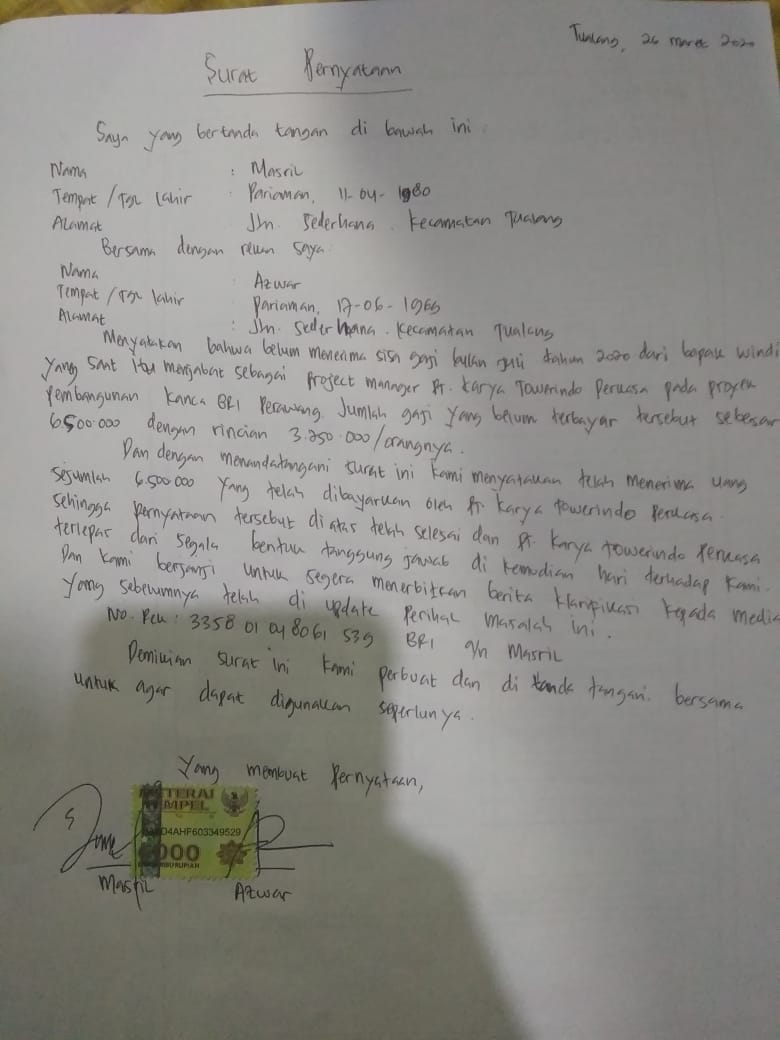 Tualang, 26 maret 2020
Surat Pernyataan
Saya yang bertanda tangan di bawah ini :
Nama : Masril
Tempat / Tgl lahir : Pariaman, 11-04-1980
Alamat Jln. Sederhana. Kecamatan Tualang
Bersama dengan rekan saya :
Nama : Azwar
Tempat / Tgl lahir Pariaman, 17-06-1965
Alamat : Jln. Sederhana. Kecamatan Tualang
Menyatakan bahwa belum menerima sisa gaji bulan juli tahun 2020 dari bapak windi
yang saat itu menjabat sebagai Project manager Pt. Karya Towerindo Perkasa pada proyek
Pembangunan Kanca BRI Perawang. Jumlah gaji yang belum terbayar tersebut sebesar
6.500.000 dengan rincian 3.250.000/orangnya.
Dan dengan menandatangani surat ini kami menyatakan telah menerima uang
sejumlah 6.500.000 yang telah dibayarkan oleh Pt. Karya Towerindo Perkasa.
sehingga pernyataan tersebut di atas telah selesai dan Pt. Karya Towerindo Perkasa
terlepas dari segala bentuk tanggung jawab di kemudian hari terhadap kami.
Dan kami berjanji untuk segera menerbitkan berita klarifikasi kepada media
yang sebelumnya telah di update perihal masalah ini.
No. Rek : 3358 01 048061 539 BRI a/n Masril
Demikian surat ini kami perbuat dan di tanda tangani bersama
untuk agar dapat digunakan seperlunya.
Yang membuat Pernyataan,
METERAI
TEMPEL
D4AHF603349529
000
RIBU RUPIAH
Masril Azwar